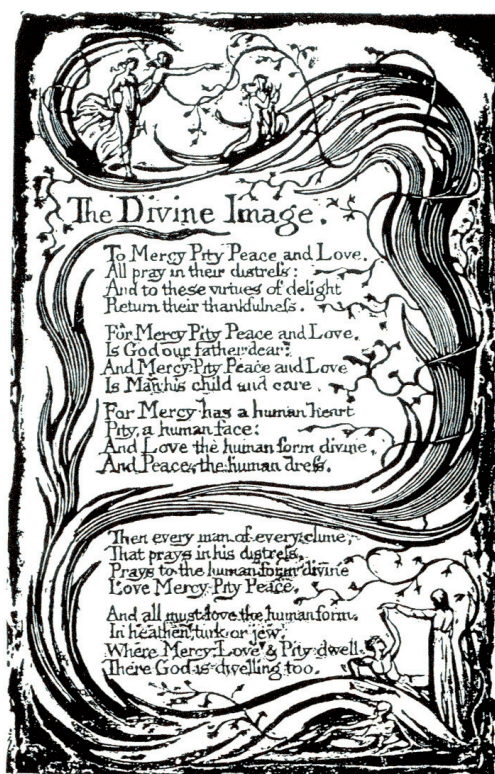 The Divine Image.
To Mercy Pity Peace and Love,
All pray in their distreſs:
And to these virtues of delight
Return their thankfulneſs.
For Mercy Pity Peace and Love,
Is God our father dear:
And Mercy Pity Peace and Love
Is Man his child and care.
For Mercy has a human heart
Pity, a human face:
And Love, the human form divine,
And Peace, the human dreſs.
Then every man of every clime,
That prays in his distreſs,
Prays to the human form divine
Love Mercy Pity Peace.
And all must love the human form,
In heathen, turk or jew.
Where Mercy, Love & Pity dwell,
There God is dwelling too.